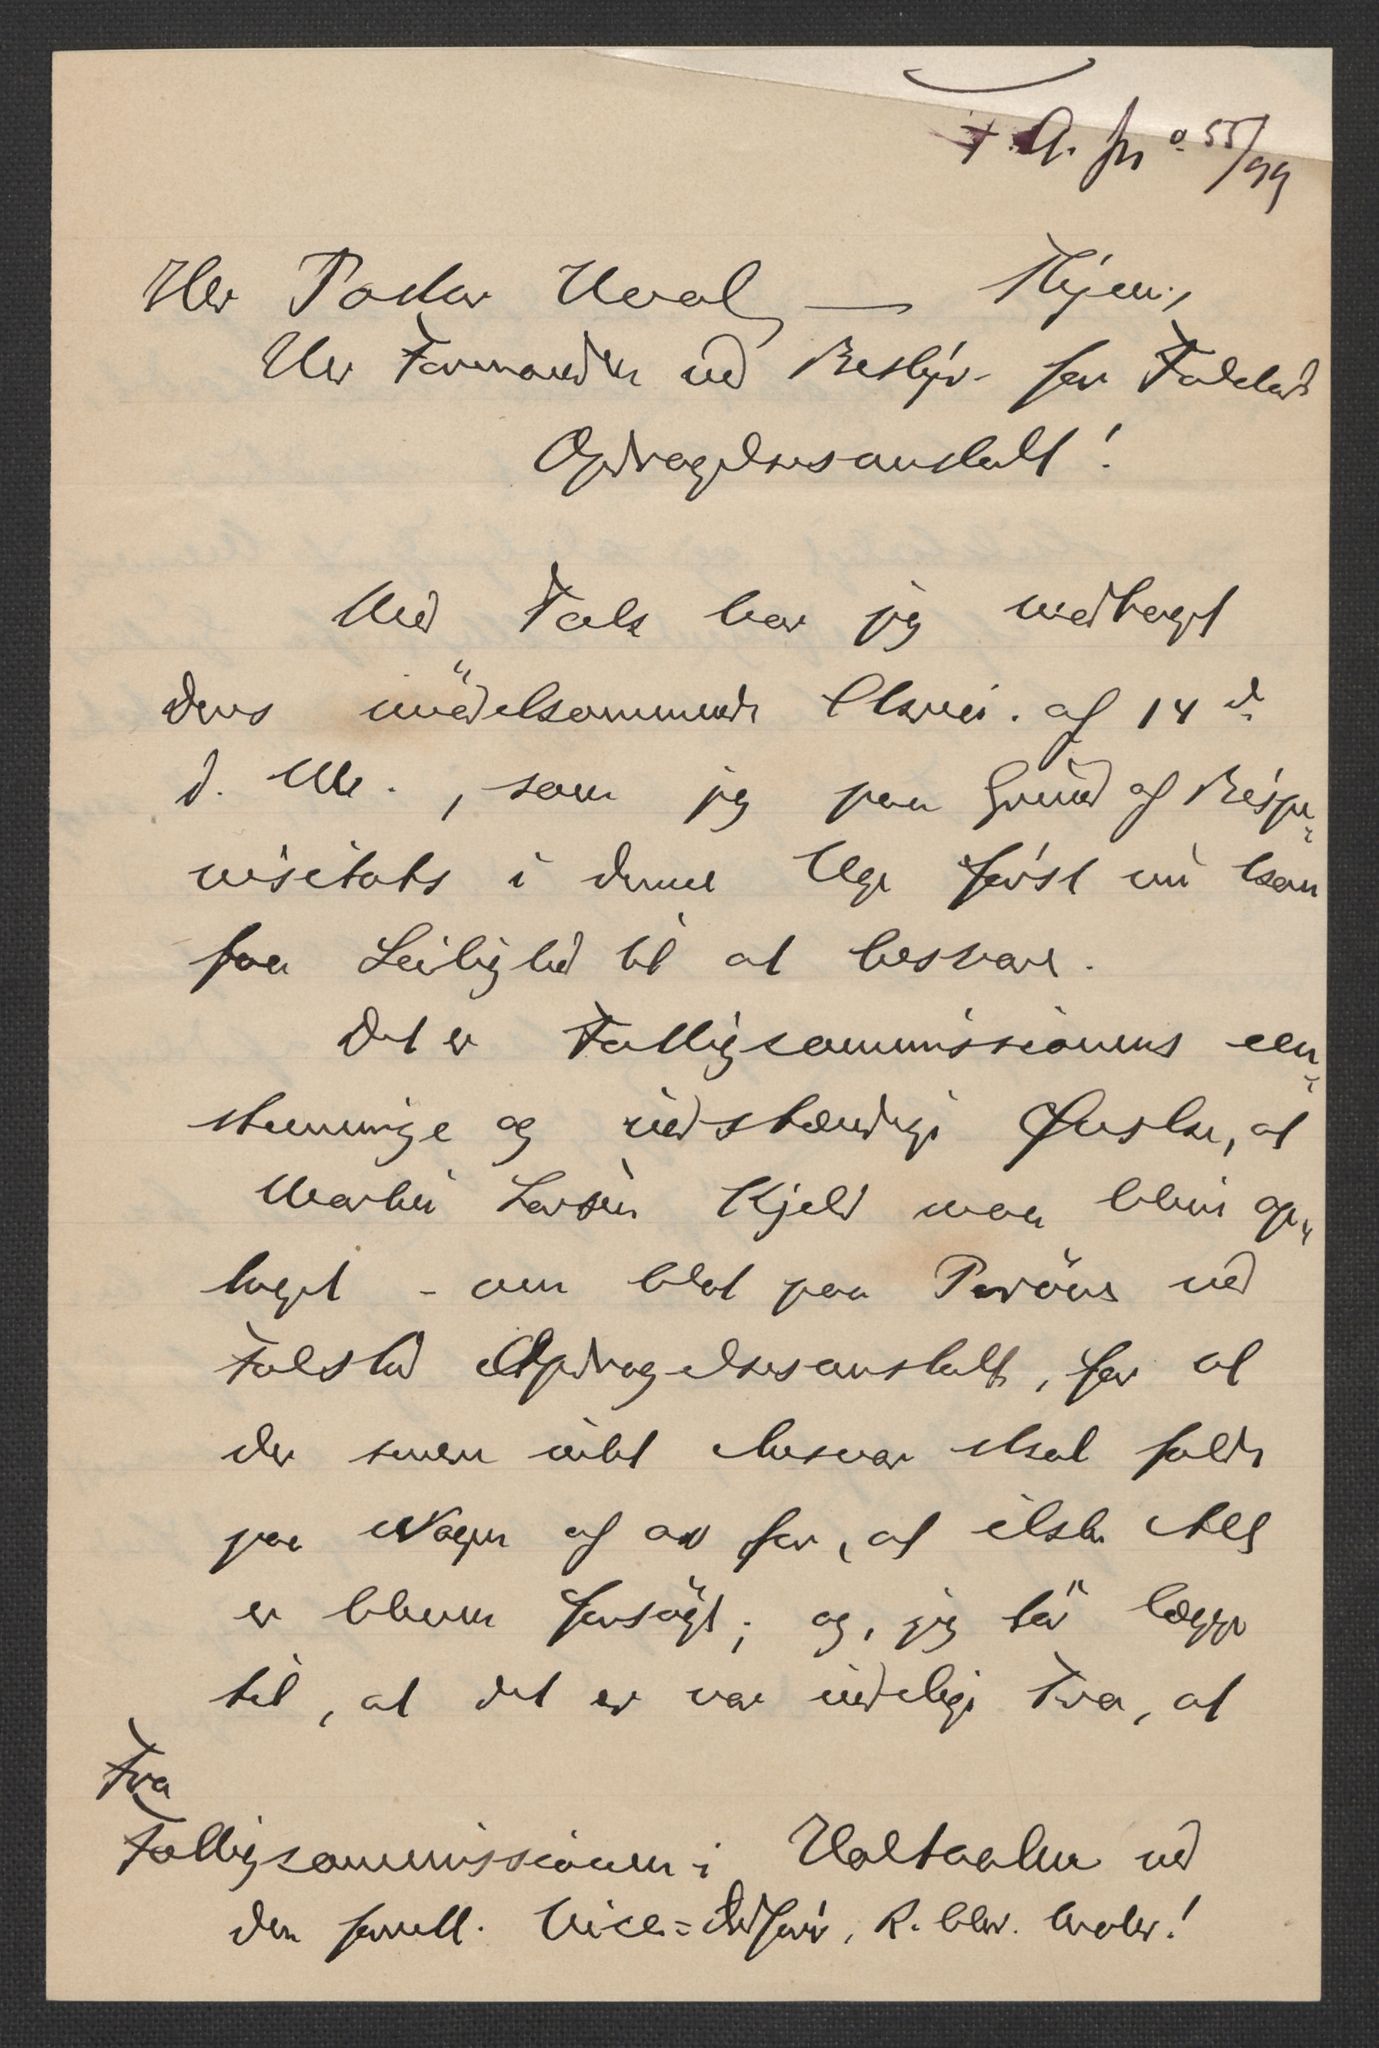 F. A. Jn o. 55/99
Hr Pastor Hval — Hjem,
Hr Formanden ved Bestyr. for Falstad
Opdragelsesanstalt!
Med Tak har jeg modtaget
Deres imödekommende Skriv. af 14 d.
d. M., som jeg paa Grund af Bispe-
visitats i denne Uge först nu kan
faa Leilighed til at besvare.
Det er Fattigcommissionens een-
stemmige og indstændige Ønske, at
Martin Larsen Kjeld maa blive op-
taget - om blot paa Pröve ved
Falstad Opdragelsesanstalt, for at
der senere intet Ansvar skal falde
paa Nogen af os for, at ikke Alt
er bleven forsögt; og, jeg tör lægge
til, at det er vor inderlige Tro, at
Fra
Fattigcommissionen i Holtaalen ved
den forrett. Vice-Ordförer, R.